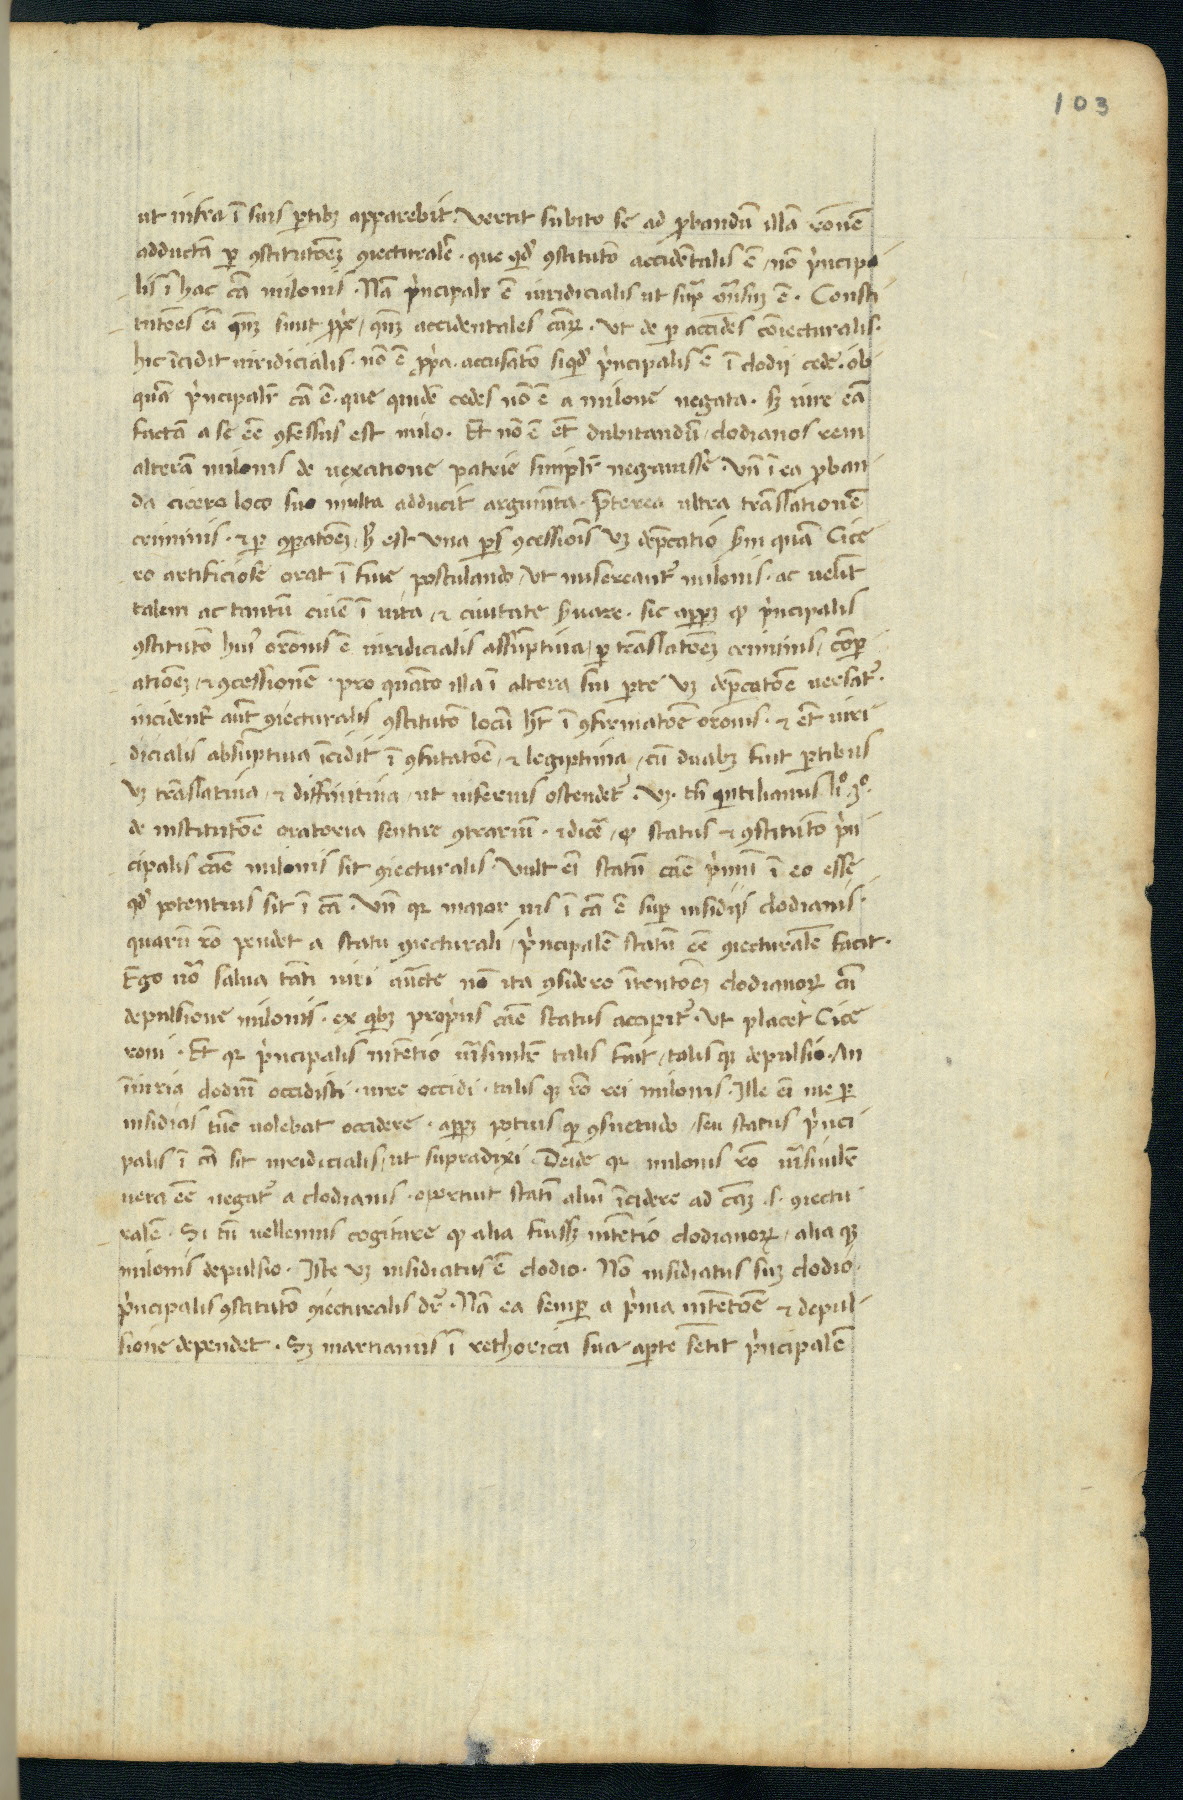 103
ut infra ī suis ꝑtibꝫ apparebit. Vertit subito se ad ꝓbandū illā ronē
adductā ꝑ ꝯstitutoēꝫ ꝯiecturalē. que qdē ꝯstituto accidētalis ē / nō prīcipa
lis ī hac cā milonis. Nā prīcipalr ē iuridicialis ut supͣ ē. Consti
tutoēs eī accidentales cāꝝ. Vt de ꝑ accīdēs coniecturalis.
hic īcidit iuridicialis. nō ē ꝓpa. accusato siqdē prīcipalis ē ī clodij cede. ob
quā prīcipalr cā ē. que quidē cedes nō ē a milone negata. sꝫ iure eā
factā a se eē ꝯfessus est milo. Et nō ē et dubitandū / clodianos rem
alterā milonis de uexatione patrie simplr negauisse. Vn ī ea ꝓban
da cicero loco suo multa adducit argumta. pterea ultra trāslationē
criminis. & ꝑ ꝯꝑatoēꝫ / h est una ps ꝯcessiois vꝫ depcatio sm quā Cice
ro artificiose orat ī fine postulando / ut misereant milonis. ac uelīt
talem ac tantū ciuē ī uita / & ciuitate suare. sic apꝫ ꝙ prīcipalis
ꝯstituto hui oronis ē iuridicialis assūptiua / ꝑ trāslatoēꝫ criminis / cōp
atioēꝫ / & ꝯcessionē. pro quāto illa ī altera sui ꝑte vꝫ depcatoē uersat.
incident aūt ꝯiecturalis ꝯstituto locū ht ī ꝯfirmatoē oronis. & et iuri
dicialis absūptiua īcidit ī ꝯfutatoē / & legiptima / cū duabꝫ suit ꝑtibus
vꝫ trāslatiua / & diffinitiua / ut inferius ostendet. Vꝫ. tn quintilianus li° 3°.
de institutoē oratoria sentire ꝯtrariū. & dicē / ꝙ status & ꝯstituto prin
cipalis cāe milonis sit ꝯiecturalis. Vult eī statū cāe primū ī eo esse
qd potentius sit ī cā. Vn qꝛ maior uis ī cā ē sup insidijs clodianis.
quarū rō pendet a statu ꝯiecturali / prīcipalē statū eē ꝯiecturalē facit.
Ego uro salua tāti uiri aucte nō ita ꝯsidero ītentoēꝫ clodianoꝝ cū
depulsione milonis. ex qbꝫ propius cāe status accipit. Vt placet Cice
roni. Et qꝛ prīcipalis intētio ursimilr talis fuit / talis qꝫ depulsio. An
īiuria clodiū occidisti. iure occidi. talis qꝫ rō rei milonis. Ille eī me ꝑ
insidias tūc uolebat occidere. apꝫ potius ꝙ ꝯsuetudo / seu status prīci
palis ī cā sit iuridicialis / ut supradixi. Deīde qꝛ milonis rō ursimilr
uera eē negat a clodianis. oportuit statū aliū īcidere ad cāꝫ. s. ꝯiectu
ralē. Si tn uellemus cogitare ꝙ alia fuissꝫ intētio clodianoꝝ / alia qꝫ
milonis depulsio. Iste vꝫ insidiatus ē clodio. Nō insidiatus suꝫ clodio.
prīcipalis ꝯstituto ꝯiecturalis dr. Nā ea semꝑ a prima intētoē & depul
sione dependet. Sꝫ martianus ī rethorica sua aꝑte sētit prīcipalē